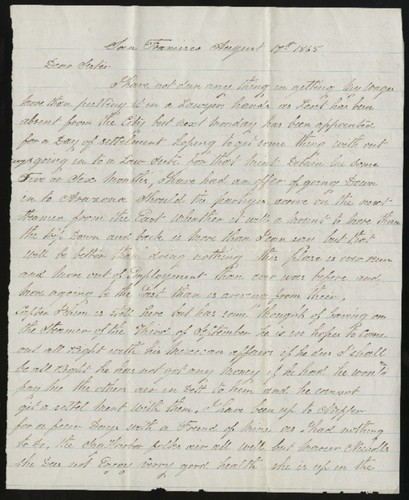 San Francisco August 17th 1865
Dear Sister
I have not dun any thing in getting my wages
more than putting it in a Lawyers hands as Kent has been
absent from the City but next Monday has been appointed
for a Day of settlement hoping to get some thing with out
going in to a Law Suit for that might Detain me some
Five or Six Months, I have had an offer of going Down
in to Arazona should the parties arrive on the next
Steamer from the East whether it will amount to more than
the trip Down and back is more than I can say but that
will be better than doing nothing this place is over run
and more out of Employement than ever was before and
more agoing to the East than is coming from there,
is still here but has some thought of leaving on
the Steamer of the Third of September he is in hopes to come
out all Right with his Mexican affairs if he dus I shall
be all Right he has not got any money if he had he would
pay me the others are in Debt to him and he cannot
get a settel ment with them, I have been up to
for a feew Days with a Friend of mine as I had nothing
to do, the folks are all well but
she Dus not Enjoy verry good health she is up in the